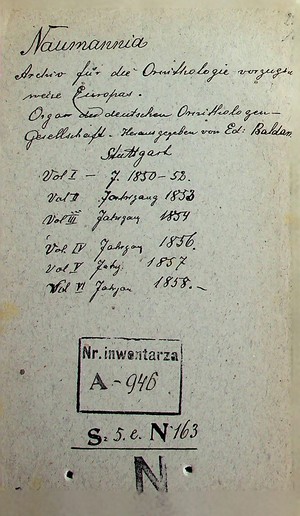 Naumannia
Archiv für die Ornithologie vorzugs
weise Europas.
Organ der deutschen Ornithologen-
Gesellschaft. Herausgegeben von Ed: Baldam
Stuttgart
Vol I — J. 1850-52.
Vol II Jahrgang 1853
Vol III Jahrgan 1854
Vol. IV Jahrgan 1856.
Vol V Jahrg. 1857
Vol VI Jahrgan 1858.—
Nr. inwentarza
A-946
S: 5. e. N 163
N